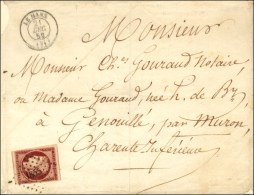 Monsieur
Monsieur Ch.s Gouraud Notaire,
ou Madame Gouraud, née h. de By
à Genouillé, par Muron,
Charente Inférieure